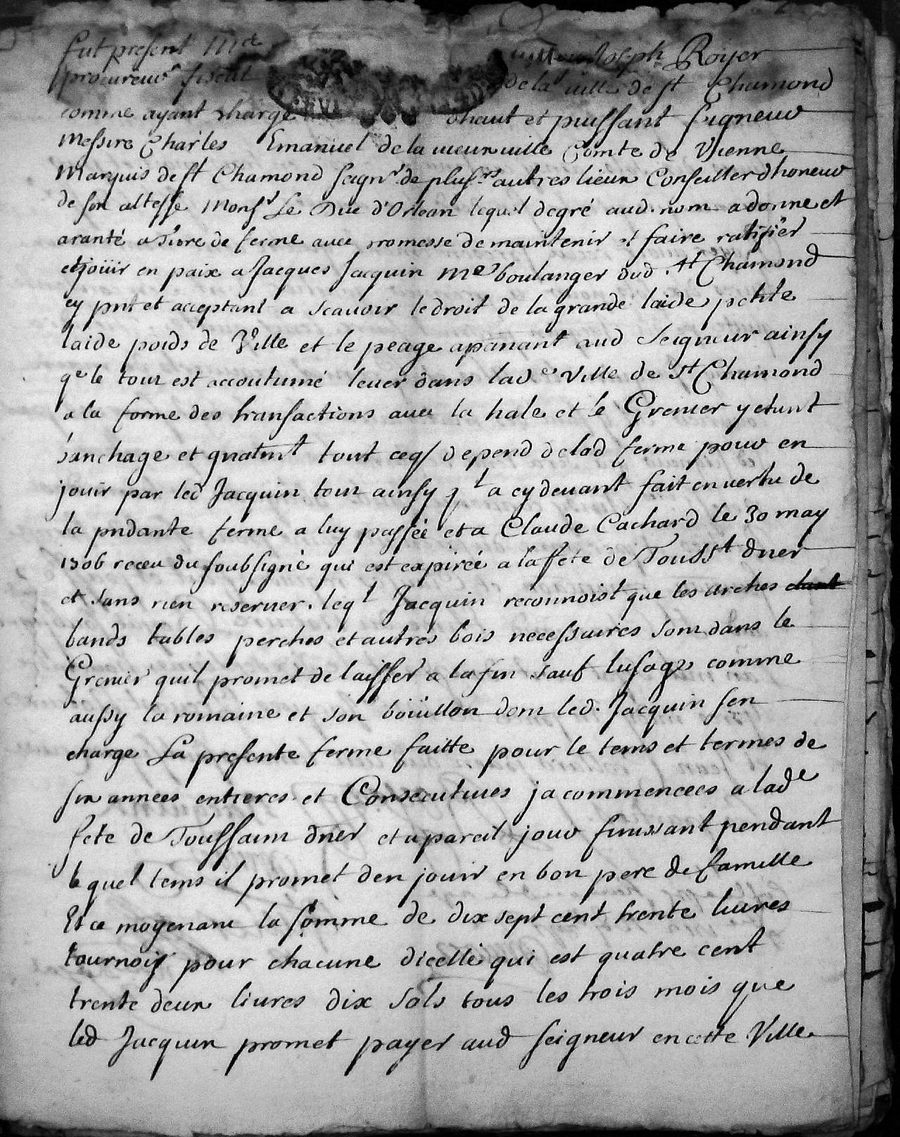 fut present Me Joseph Royer
procureur fiscal de la ville de St Chamond
comme ayant charge dhaut et puissant Signeur
Messire Charles Emanuel de la vieuxville Comte de Vienne
Marquis de St Chamond seignr. de plusrs autres lieux Conseiller dhoneur
de son altesse Monsr Le Duc d'Orlean lequel degré aud. nom a donne et
aranté a titre de ferme avec promesse de maintenir et faire ratifier
et joüir en paix a Jacques Jacquin me boulanger dud St Chamond
cy pnt et acceptant a scavoir le droit de la grande laide petite
laide poids de Ville et le peage apartenant aud Seigneur ainsy
qe le tout est accoutumé lever dans lade Ville de St Chamond
a la forme des transactions avec la hale et le Grenier y etant
sanchage et quatmt tout ceqs depend de lad ferme pour en
jouir par led Jacquin tout ainsy ql a cy devant fait en vertu de
la pndante ferme a luy passée et a Claude Cachard le 30 may
1706 receu du soubsigné qui est expirée a la fete de Tousst dner
et sans rien reserver. leql Jacquin reconnoist que les arches
bands tables perches et autres bois necessaires sont dans le
Grenier quil promet de laisser a la fin sauf lusage comme
aussy la romaine et son boüillon dont led. Jacquin sen
charge La presente ferme faitte pour le tems et termes de
six années entieres et Consecutives ja commencées a lade
fete de Toussaint dner et a pareil jour finissant pendant
le quel tems il promet den jouir en bon pere de famille
Et ce moyenant la somme de dix sept cent trente livres
tournois pour chacune dicelle qui est quatre cent
trente deux livres dix sols tous les trois mois que
led Jacquin promet payer aud seigneur en cette Ville